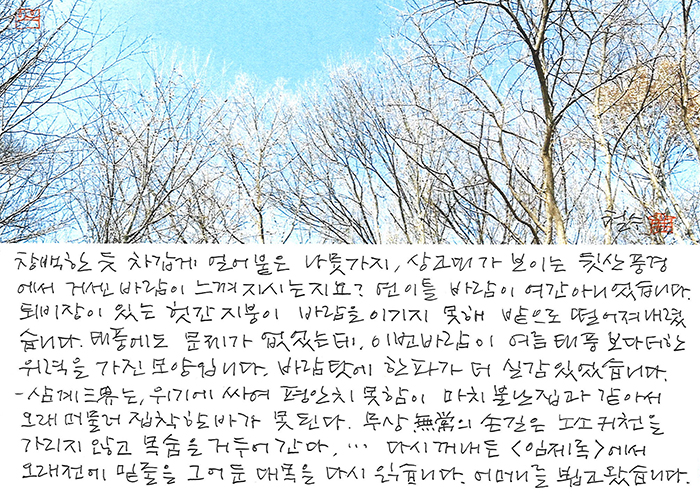 철수
창백한 듯 차갑게 얼어붙은 나뭇가지, 상고대가 보이는 뒷산 풍경
에서 거센 바람이 느껴지시는지요? 연이틀 바람이 여간아니었습니다.
퇴비장이 있는 헛간 지붕이 바람을 이기지 못해 밭으로 떨어져내렸
습니다. 태풍에도 문제가 없었는데, 이번바람이 여름태풍보다 더한
위력을 가진 모양입니다. 바람탓에 한파가 더 실감있었습니다.
- 삼계三界는, 위기에 싸여 편안치 못함이 마치 불난집과 같아서
오래 머물러 집착할바가 못된다. 무상無常의 손길은 노소귀천을
가리지 않고 목숨을 거두어 간다. … 다시 꺼내든 <임제록>에서
오래전에 밑줄을 그어 둔 대목을 다시 읽습니다. 어머니를 뵙고왔습니다.